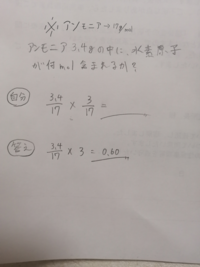 ※ アンモニア→17g/mol
アンモニア3.4gの中に、水素原子
が何mol含まれるか?
自分
3.4/17 × 3/17 =
答え
3.4/17 × 3 = 0.60